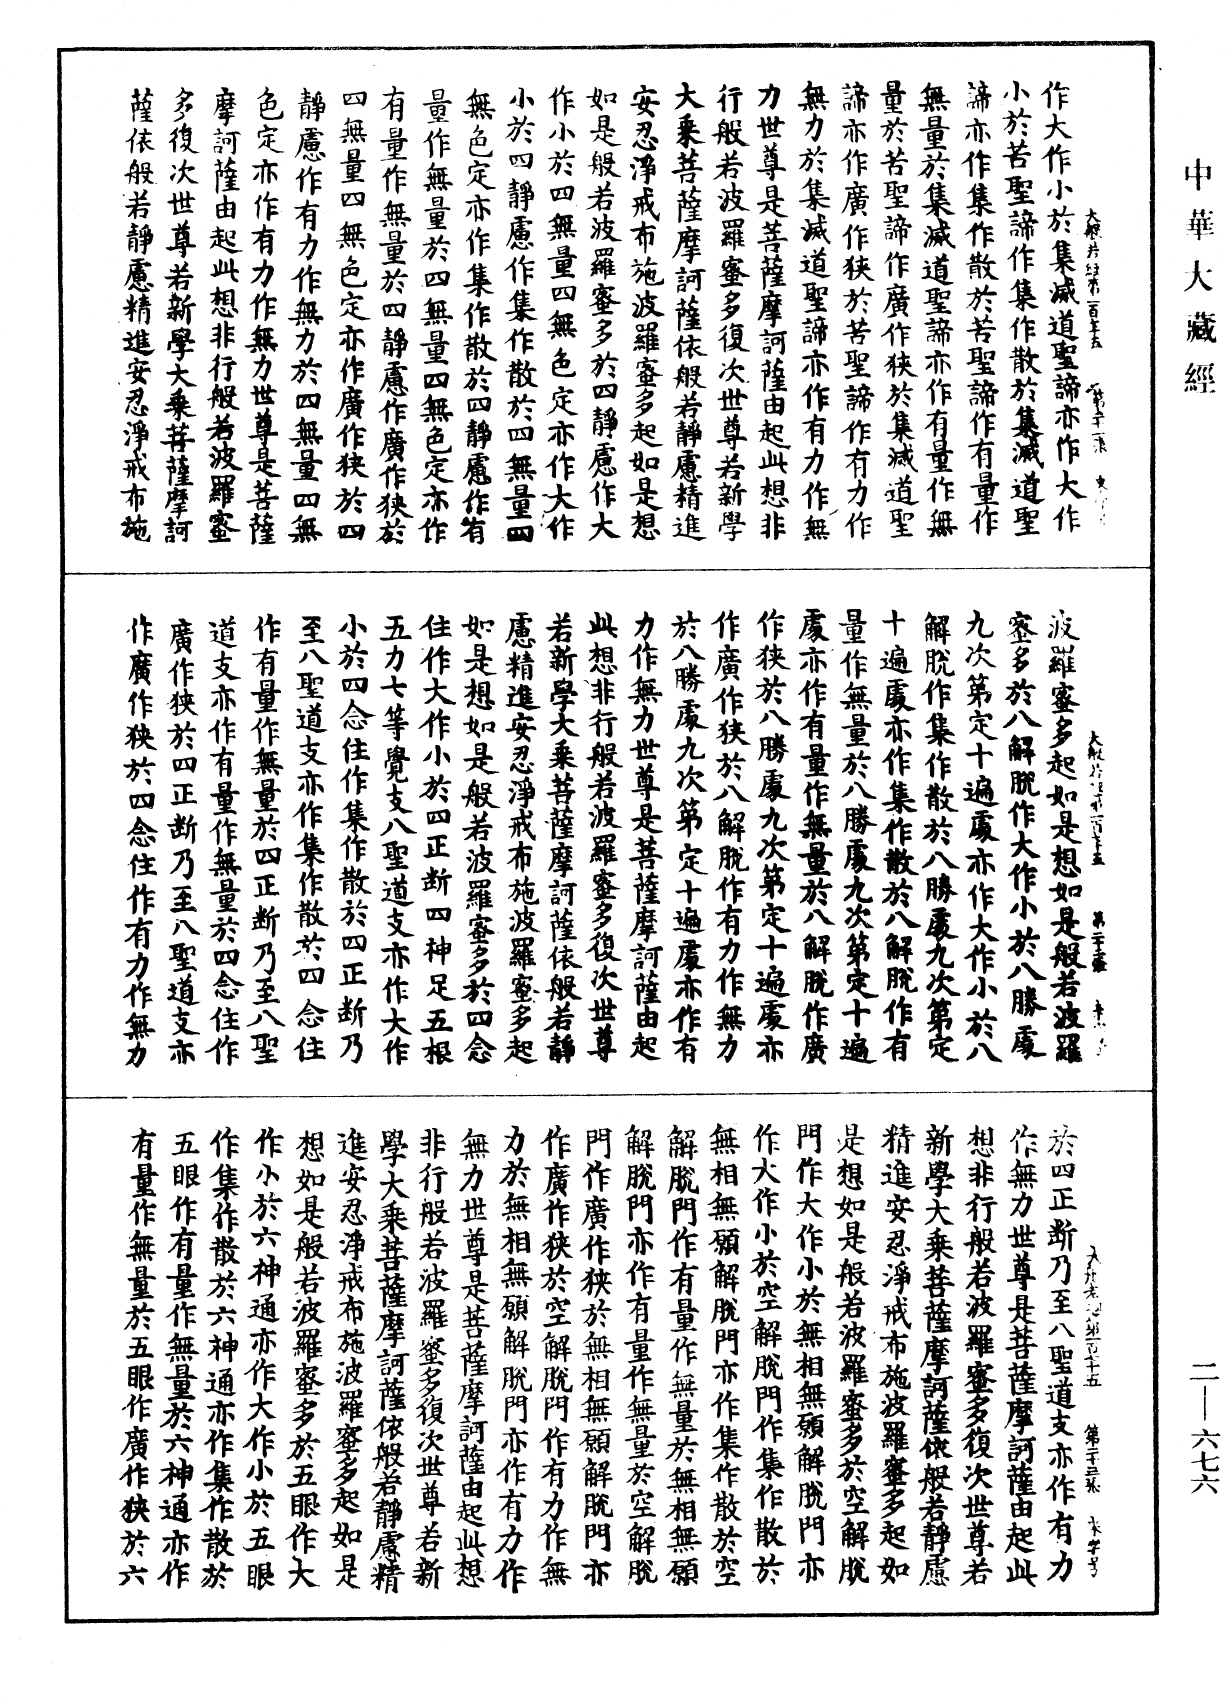 中華大藏經
作大作小於集滅道聖諦亦作大作
小於苦聖諦作集作散於集滅道聖
諦亦作集作散於苦聖諦作有量作
無量於集滅道聖諦亦作有量作無
量於苦聖諦作廣作狹於集滅道聖
諦亦作廣作狹於苦聖諦作有力作
無力於集滅道聖諦亦作有力作無
力世尊是菩薩摩訶薩由起此想非
行般若波羅蜜多復次世尊若新學
大乘菩薩摩訶薩依般若靜慮精進
安忍淨戒布施波羅蜜多起如是想
如是般若波羅蜜多於四靜慮作大
作小於四無量四無色定亦作大作
小於四靜慮作集作散於四無量四
無色定亦作集作散於四靜慮作有
量作無量於四無量四無色定亦作
有量作無量於四靜慮作廣作狹於
四無量四無色定亦作廣作狹於四
靜慮作有力作無力於四無量四無
色定亦作有力作無力世尊是菩薩
摩訶薩由起此想非行般若波羅蜜
多復次世尊若新學大乘菩薩摩訶
薩依般若靜慮精進安忍淨戒布施
波羅蜜多起如是想如是般若波羅
蜜多於八解脫作大作小於八勝處
九次第定十遍處亦作大作小於八
解脫作集作散於八勝處九次第定
十遍處亦作集作散於八解脫作有
量作無量於八勝處九次第定十遍
處亦作有量作無量於八解脫作廣
作狹於八勝處九次第定十遍處亦
作廣作狹於八解脫作有力作無力
於八勝處九次第定十遍處亦作有
力作無力世尊是菩薩摩訶薩由起
此想非行般若波羅蜜多復次世尊
若新學大乘菩薩摩訶薩依般若靜
慮精進安忍淨戒布施波羅蜜多起
如是想如是般若波羅蜜多於四念
住作大作小於四正斷四神足五根
五力七等覺支八聖道支亦作大作
小於四念住作集作散於四正斷乃
至八聖道支亦作集作散於四念住
作有量作無量於四正斷乃至八聖
道支亦作有量作無量於四念住作
廣作狹於四正斷乃至八聖道支亦
作廣作狹於四念住作有力作無力
於四正斷乃至八聖道支亦作有力
作無力世尊是菩薩摩訶薩由起此
想非行般若波羅蜜多復次世尊若
新學大乘菩薩摩訶薩依般若靜慮
精進安忍淨戒布施波羅蜜多起如
是想如是般若波羅蜜多於空解脫
門作大作小於無相無願解脫門亦
作大作小於空解脫門作集作散於
無相無願解脫門亦作集作散於空
解脫門作有量作無量於無相無願
解脫門亦作有量作無量於空解脫
門作廣作狹於無相無願解脫門亦
作廣作狹於空解脫門作有力作無
力於無相無願解脫門亦作有力作
無力世尊是菩薩摩訶薩由起此想
非行般若波羅蜜多復次世尊若新
學大乘菩薩摩訶薩依般若靜慮精
進安忍淨戒布施波羅蜜多起如是
想如是般若波羅蜜多於五眼作大
作小於六神通亦作大作小於五眼
作集作散於六神通亦作集作散於
五眼作有量作無量於六神通亦作
有量作無量於五眼作廣作狹於六
二—六七六